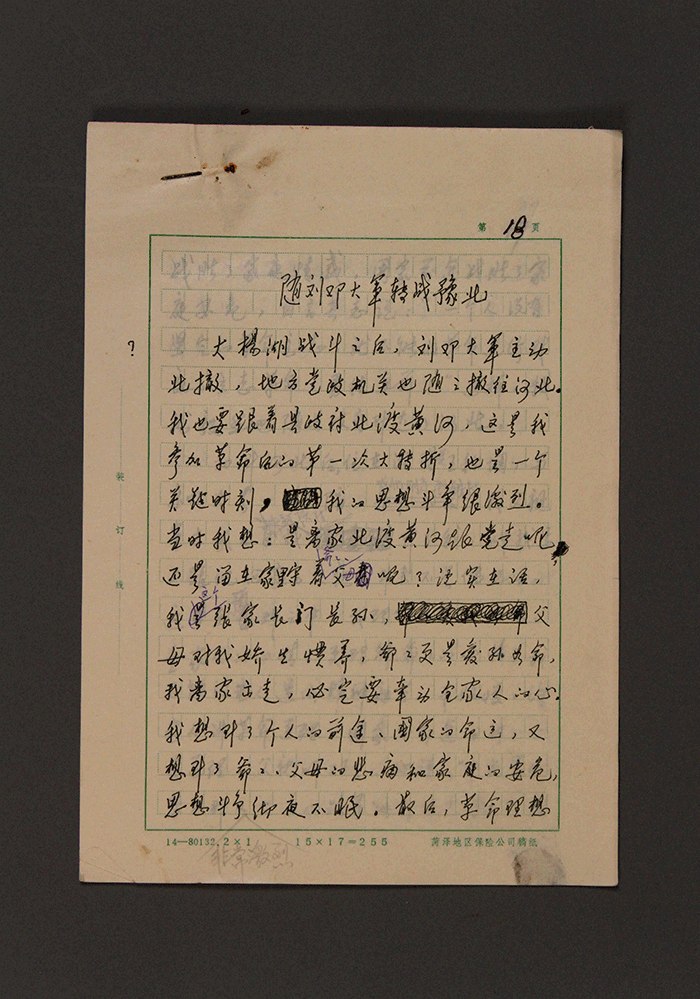 第 18 页
随刘邓大军转战豫北
?
大杨湖战斗之后，刘邓大军主动
北撤，地方党政机关也随之撤往河北。
我也要跟着县政府北渡黄河，这是我
参加革命后的第一次大转折，也是一个
关键时刻，我的思想斗争很激烈。
当时我想：是离家北渡黄河跟党走呢，
爷爷
还是留在家里守着父母呢？说实在话，
这个
我是张家长门长孙，父
母对我娇生惯养，爷爷更是爱孙如命，
我离家出走，必定要牵动全家人的心。
我想到了个人的前途、国家的命运，又
想到了爷爷、父母的悲痛和家庭的安危，
思想斗争彻夜不眠。最后，革命理想
非常激烈
装订线
14—80132.2×1 15×17=255 菏泽地区保险公司稿纸